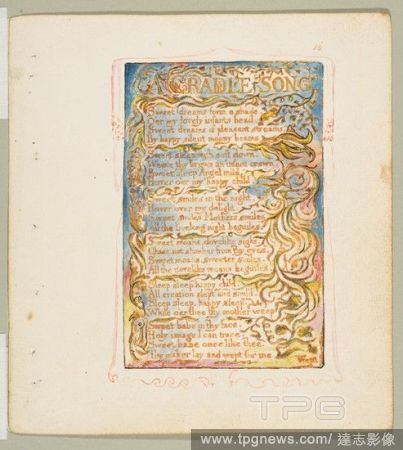 16
A CRADLE SONG
Sweet dreams form a shade
O'er my lovely infants head.
Sweet dreams of pleasant streams
By happy silent moony beams
Sweet sleep with soft down
Weave thy brows an infant crown.
Sweet sleep Angel mild,
Hover o'er my happy child.
Sweet smiles in the night
Hover over my delight.
Sweet smiles Mothers smiles
All the livelong night beguiles.
Sweet moans, dovelike sighs,
Chase not slumber from thy eyes
Sweet moans, sweeter smiles,
All the dovelike moans beguiles.
Sleep sleep happy child.
All creation slept and smil'd.
Sleep sleep, happy sleep,
While o'er thee thy mother weep
Sweet babe in thy face,
Holy image I can trace.
Sweet babe once like thee,
Thy maker lay and wept for me
Wept
TPG
www.tpgnews.com / 達志影像